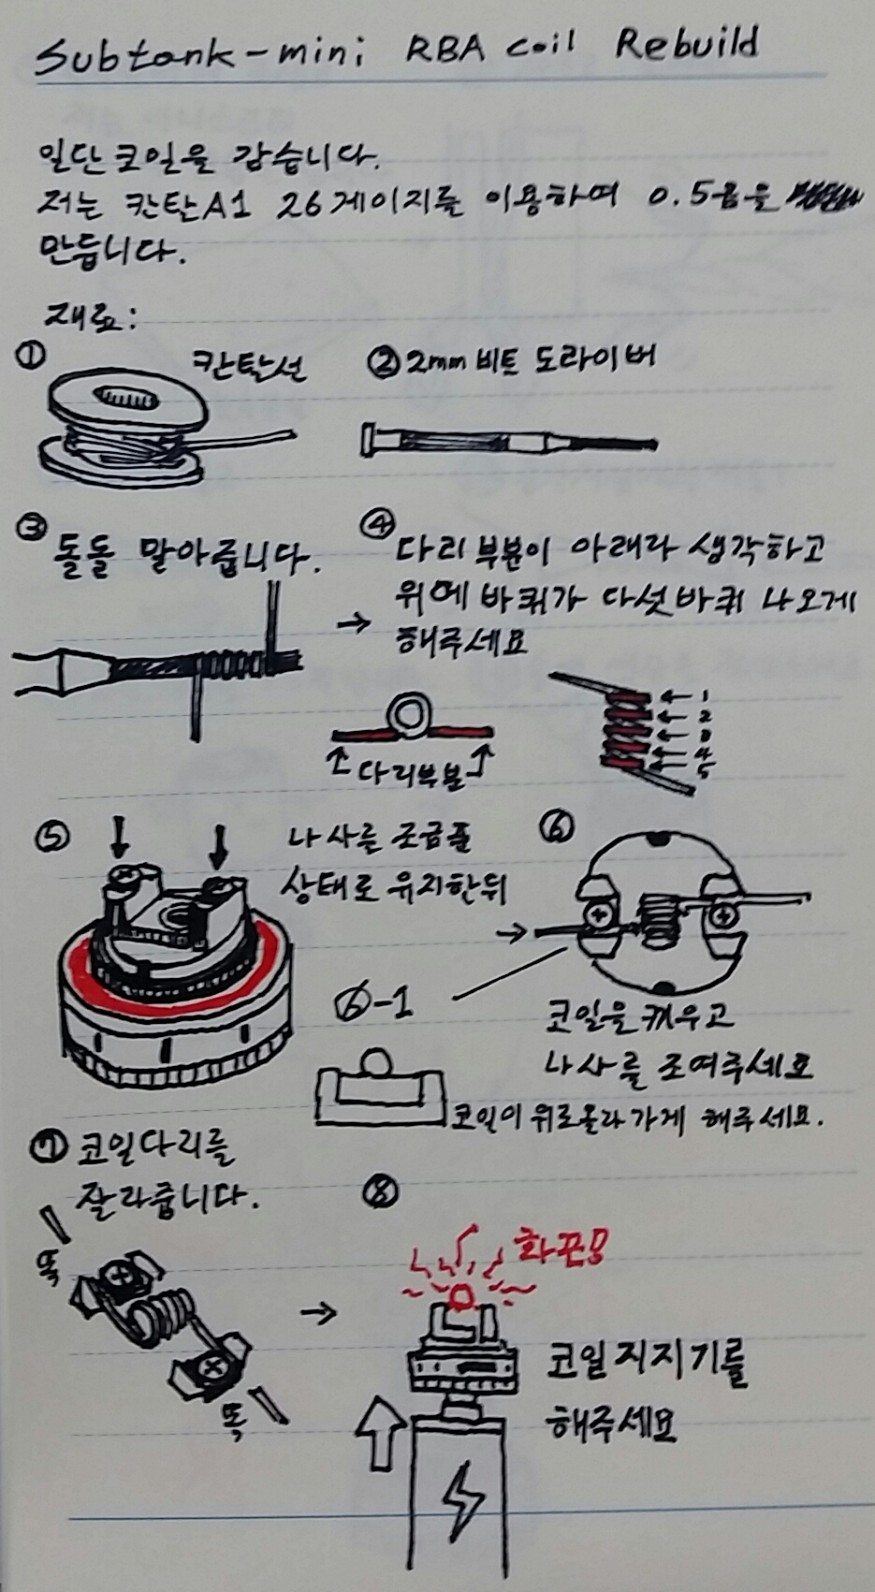 Subtank-mini RBA coil Rebuild
일단 코일을 감습니다.
저는 칸탈A1 26게이지를 이용하여 0.5옴을
만듭니다.
재료:
① 칸탈선
② 2mm 비트 도라이버
③ 돌돌 말아줍니다.
④ 다리부분이 아래라 생각하고
위에 바퀴가 다섯바퀴 나오게
해주세요
다리부분
1
2
3
4
5
⑤ 나사를 조금푼
상태로 유지한뒤
⑥
코일을 끼우고
나사를 조여주세요
⑥-1
코일이 위로올라가게 해주세요.
⑦ 코일다리를
잘라줍니다.
뚝
뚝
⑧
화끈
코일 지지기를
해주세요